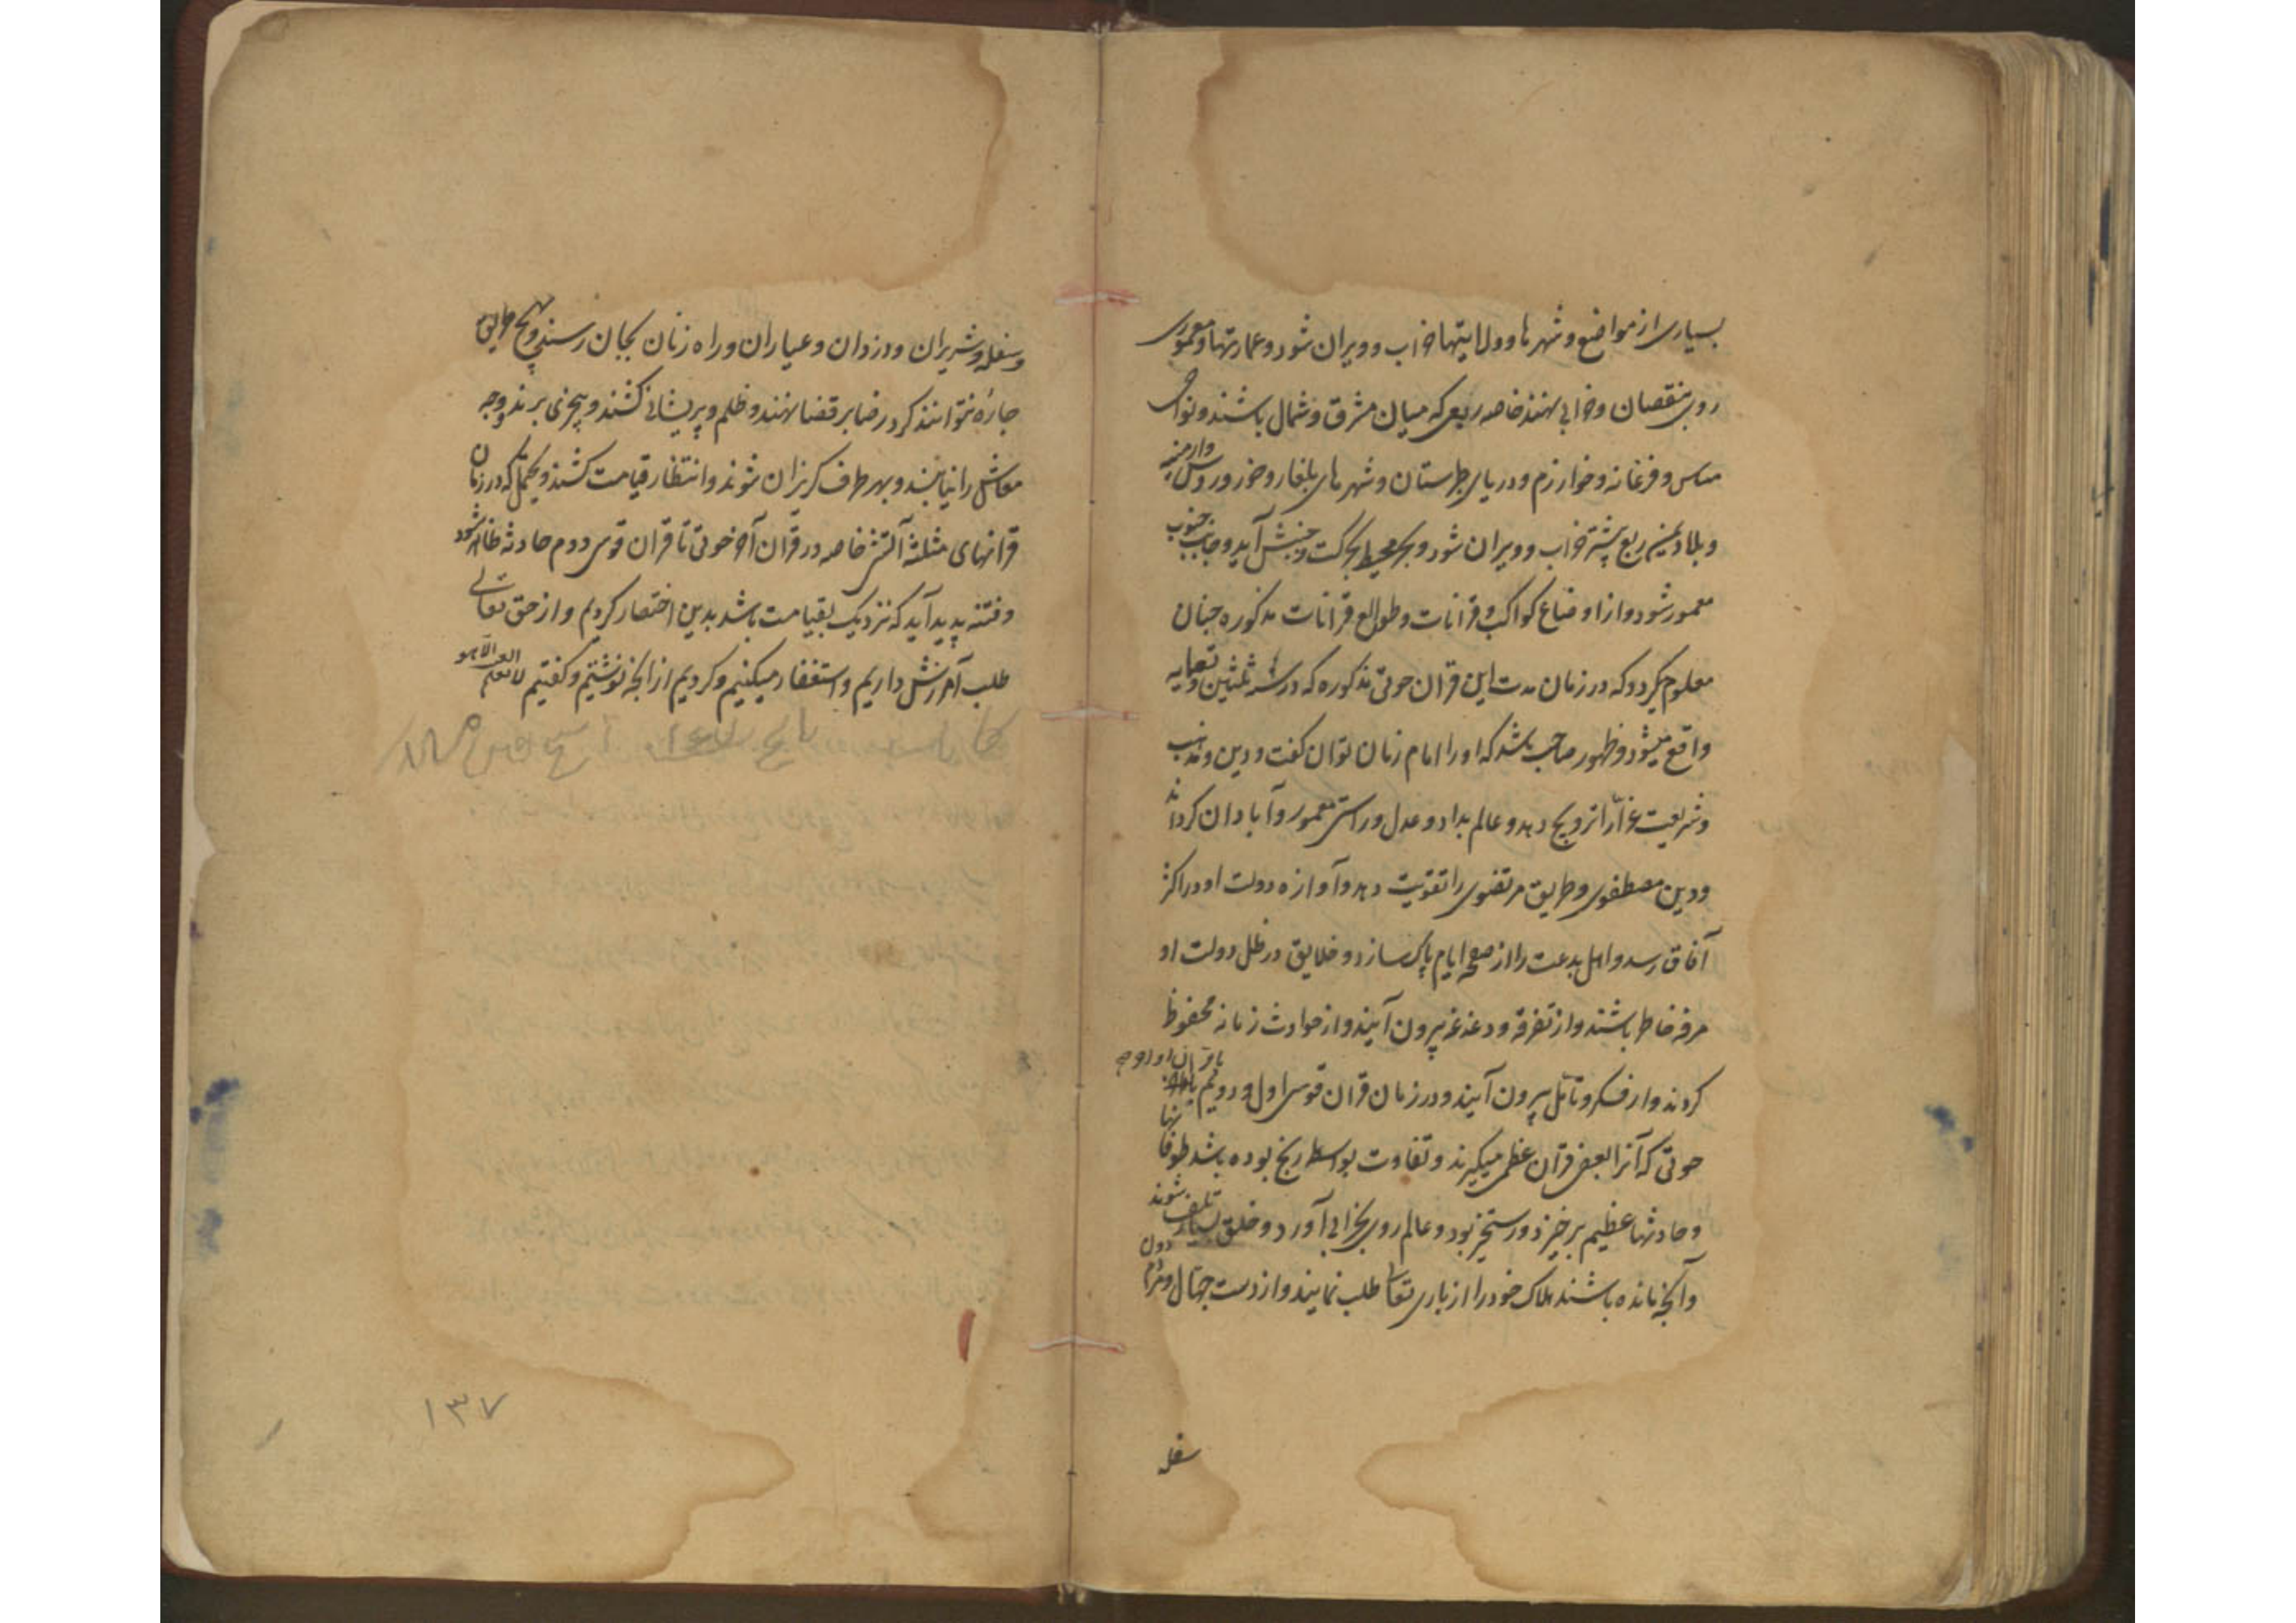 بسیاری از مواضع و شهرها و ولایتها خراب و ویران شود و عمارتها و معموری
روی بنقصان و خرابی نهند خاصه ربعی که میان مشرق و شمال باشند و نواحی
و فرغانه و خوارزم و دریای طبرستان و شهرهای بلغار و خزر و روس و ارمنیه
و بلاد این ربع بیشتر خراب و ویران شود و بحر محیط بحرکت و جنبش آید و جانب جنوب
معمور شود و از اوضاع کواکب و قرانات و طوالع قرانات مذکوره چنان
معلوم میگردد که در زمان مدت این قران حوتی مذکوره که در سنه ثلثین و تسعمایه
واقع میشود ظهور صاحب باشد که او را امام زمان توان گفت و دین و مذهب
و شریعت غرا را ترویج دهد و عالم بداد و عدل و راستی معمور و آبادان گرداند
و دین مصطفوی و طریق مرتضوی را تقویت دهد و آوازه دولت او در اکثر
آفاق رسد و اهل بدعت را از صفحه ایام پاک سازد و خلایق در ظل دولت او
مرفه خاطر باشند و از تفرقه و دغدغه بیرون آیند و از حوادث زمانه محفوظ
گردند و از فکر و تأمل بیرون آیند و در زمان قران قوسی اول و دویم
حوتی که آنرا بعضی قران عظمی میگیرند و تفاوت بواسطه زیج بوده باشد طوفانها
و حادثها عظیم برخیزد و رستخیز بود و عالم روی بخرابی آورد و خلق بسیار تلف شوند
و آنچه مانده باشند هلاک خود را از باری تعالی طلب نمایند و از دست جهال و مردم دون
سفله
و سفله و شریران و دزدان و عیاران و راه زنان بجان رسند و بهیچ طریق
چاره نتوانند کرد رضا بر قضا نهند و ظلم و پریشانی کشند و بهیچ وجه
معاش را نیابند و بهر طرف گریزان شوند و انتظار قیامت کشند و یحتمل که در زمان
قرانهای مثلثه آتش خاصه در قران آخر حوتی تا قران قوسی دوم حادثه ظاهر شود
و فتنه پدید آید که نزدیک بقیامت باشد بدین اختصار کردیم و از حق تعالی
طلب آمرزش داریم و استغفار میکنیم و کردیم از آنچه نوشتیم و گفتیم لا یعلم الغیب الا هو
۱۳۷